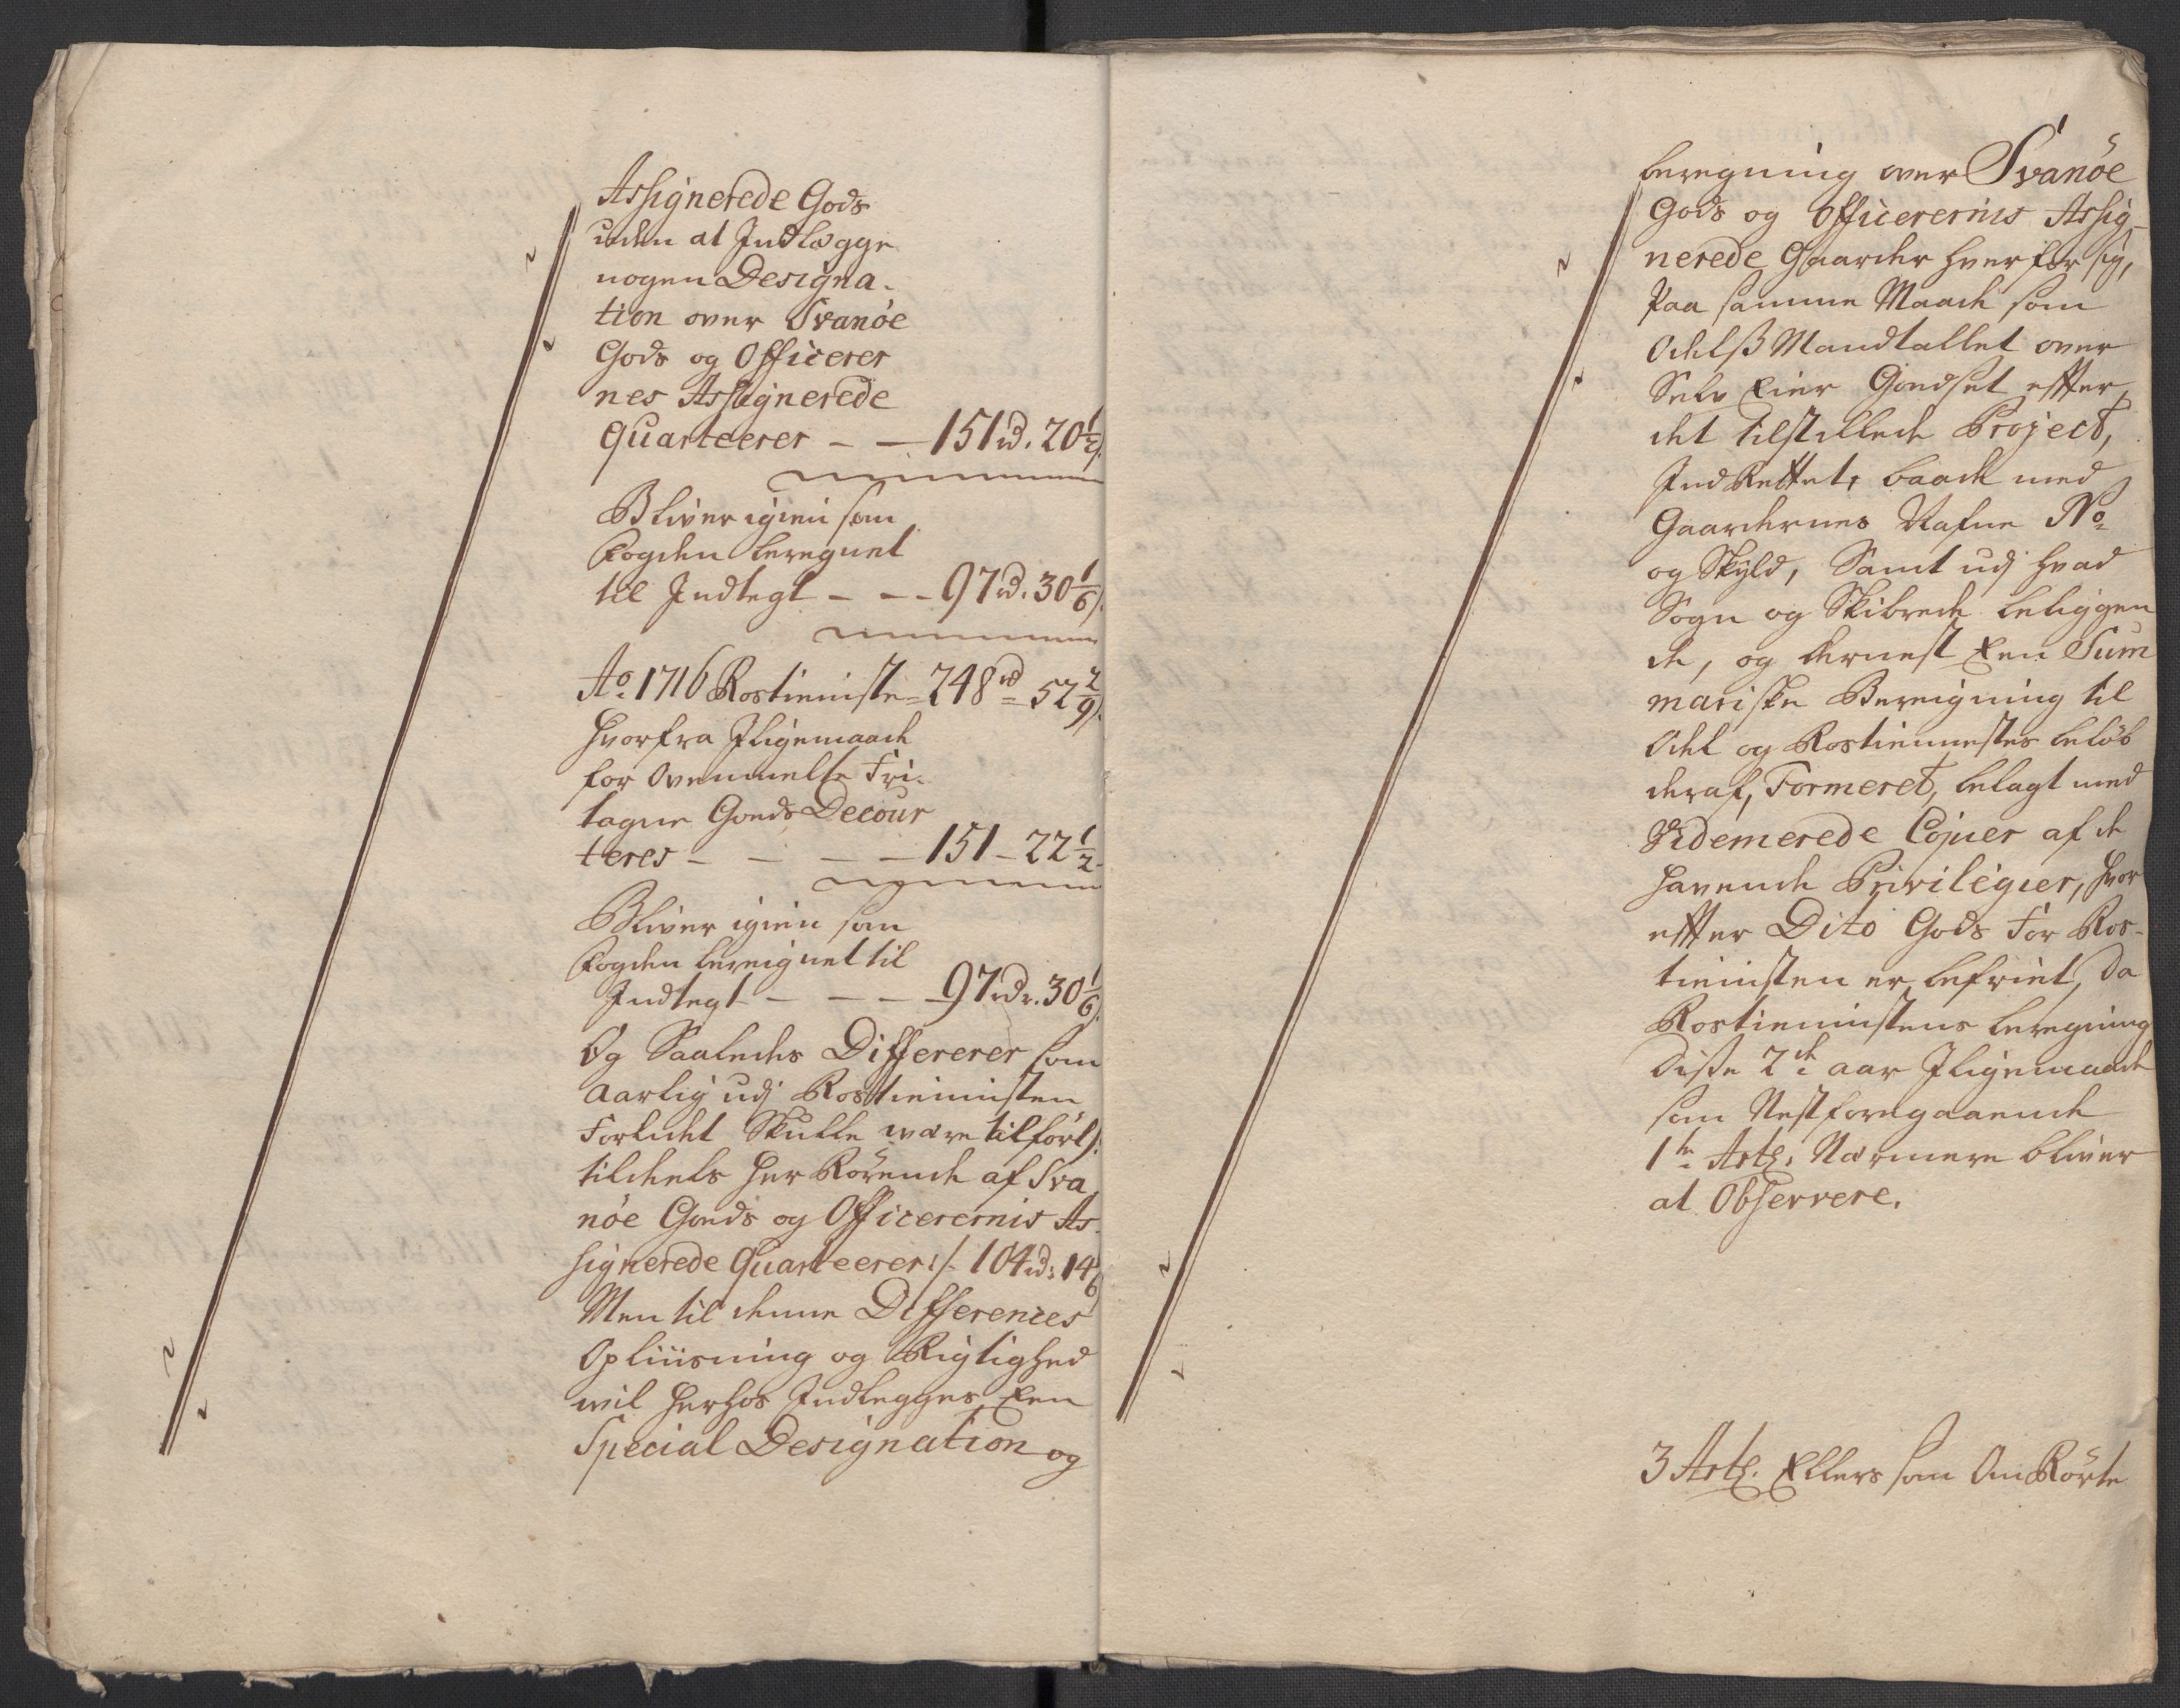 Assignerede Gods
uden at Indlægge
nogen Designa-
tion over Svanöe
Gods og Officerer
nes Assignerede
Quarteerer - - 151 rd. 20 1/2 s.
Bliver igien som
Fogden beregnet
til Indtegt - - - 97 rd. 30 1/6 s.
Ao. 1716 Rostieniste = 248 rd = 52 2/9 s.
hvorfra Iligemaade
for Ovenmelte Fri-
tagne Goeds Decour
teres - - - - 151 - 22 1/2 -
Bliver igien som
Fogden bereignet til
Indtegt - - - - 97 rdr. 30 1/6 s.
Og Saaledes Differerer som
Aarlig udj Rostienisten
Forlidet Skulle være tilført /:
tildeels her Rörende af Sva
nöe Goeds og Officerernis As-
signerede Quarteerer :/. 104 rd: 14 s
Men til denne Differences
Opliusning og Rigtighed
vil herhos Indlegges Een
Special Designation og
beregning over Svanöe
Gods og Officerernis Assig-
nerede Gaarder hver for sig,
Paa samme Maade som
Odelsß Mandtallet over
Selv Eier Goedset effter
det tilstillede Project,
IndRettet, baade med
Gaardernes Nafne No.
og Skyld, Samt udj hvad
Sogn og Skibrede beliggen
de, og dernest Een Sum
mariske Bereigning til
Odel og Rostiennestes beløb
deraf, Formeret, belagt med
Videmerede Copier af de
havende Privilegier, hvor
effter Dito Gods For Ros-
tienisten er befriet, Da
Rostienistens beregning
Disse 2de aar Iligemaade
som Nest foregaaende
1te Artl. Nærmere bliver
at Observere.
3 Artl. Ellers som Om Rörte